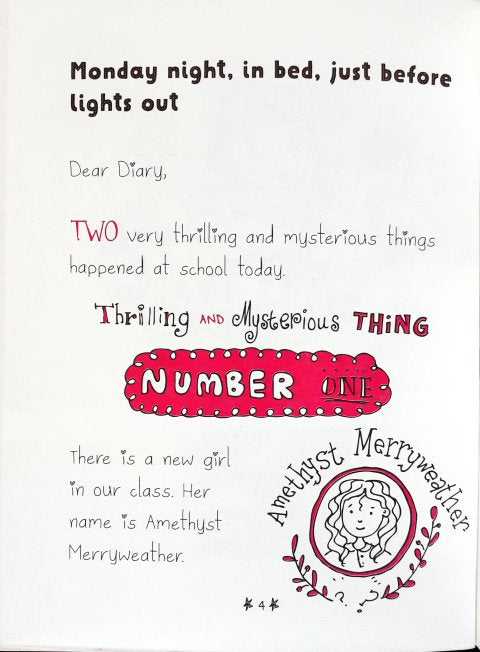 Monday night, in bed, just before
lights out
Dear Diary,
TWO very thrilling and mysterious things
happened at school today.
Thrilling AND Mysterious THING
NUMBER ONE
There is a new girl
in our class. Her
name is Amethyst
Merryweather.
Amethyst Merryweather
? ?
4